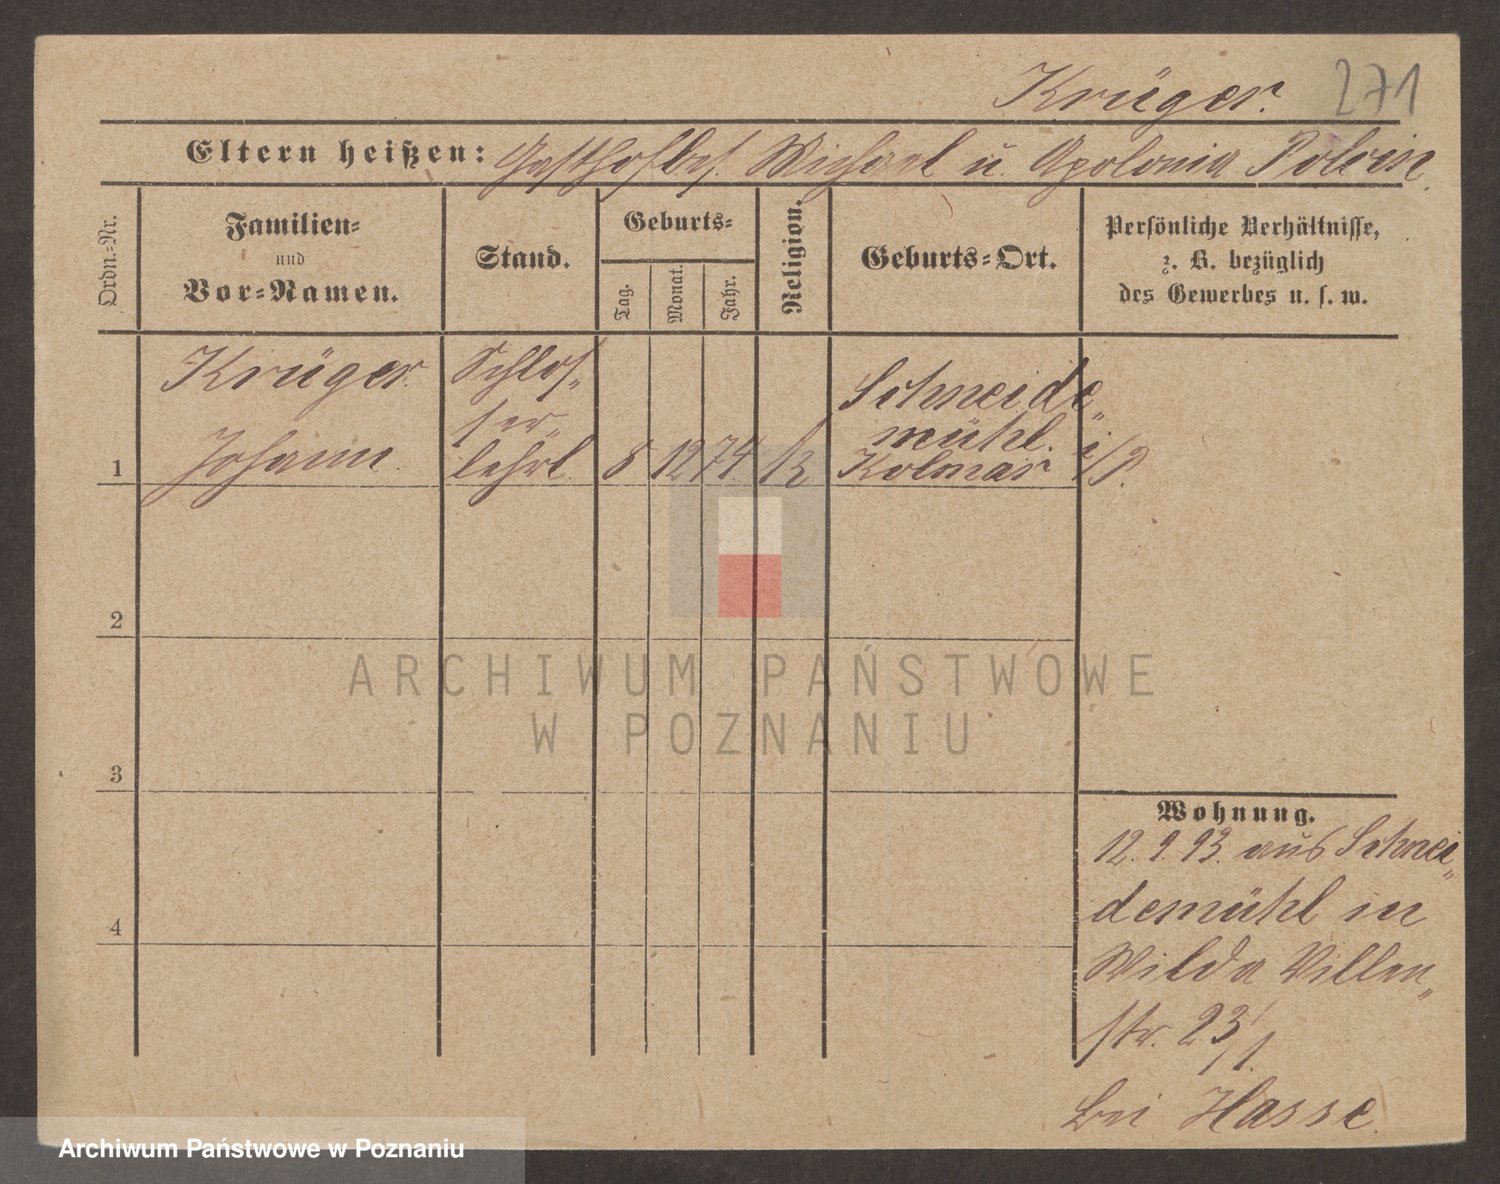 Krüger. 271
Eltern heißen: Gasthofbes. Michael u. Apolonia
Ordn.-Nr.
Familien-
und
Vor-Namen.
Stand.
Geburts-
Tag.
Monat.
Jahr.
Religion.
Geburts-Ort.
Persönliche Verhältnisse,
z. B. bezüglich
des Gewerbes u. s. w.
Krüger
Johann
Schlos-
ser-
lehrl.
8 12 74
Schneide-
mühl.
Kolmar i/P.
1
2
3
4
Wohnung.
12. 9. 93. aus Schnei-
demühl in
Wilda Villen-
str. 23/1.
bei Hasse.
ARCHIWUM PAŃSTWOWE
W POZNANIU
Archiwum Państwowe w Poznaniu